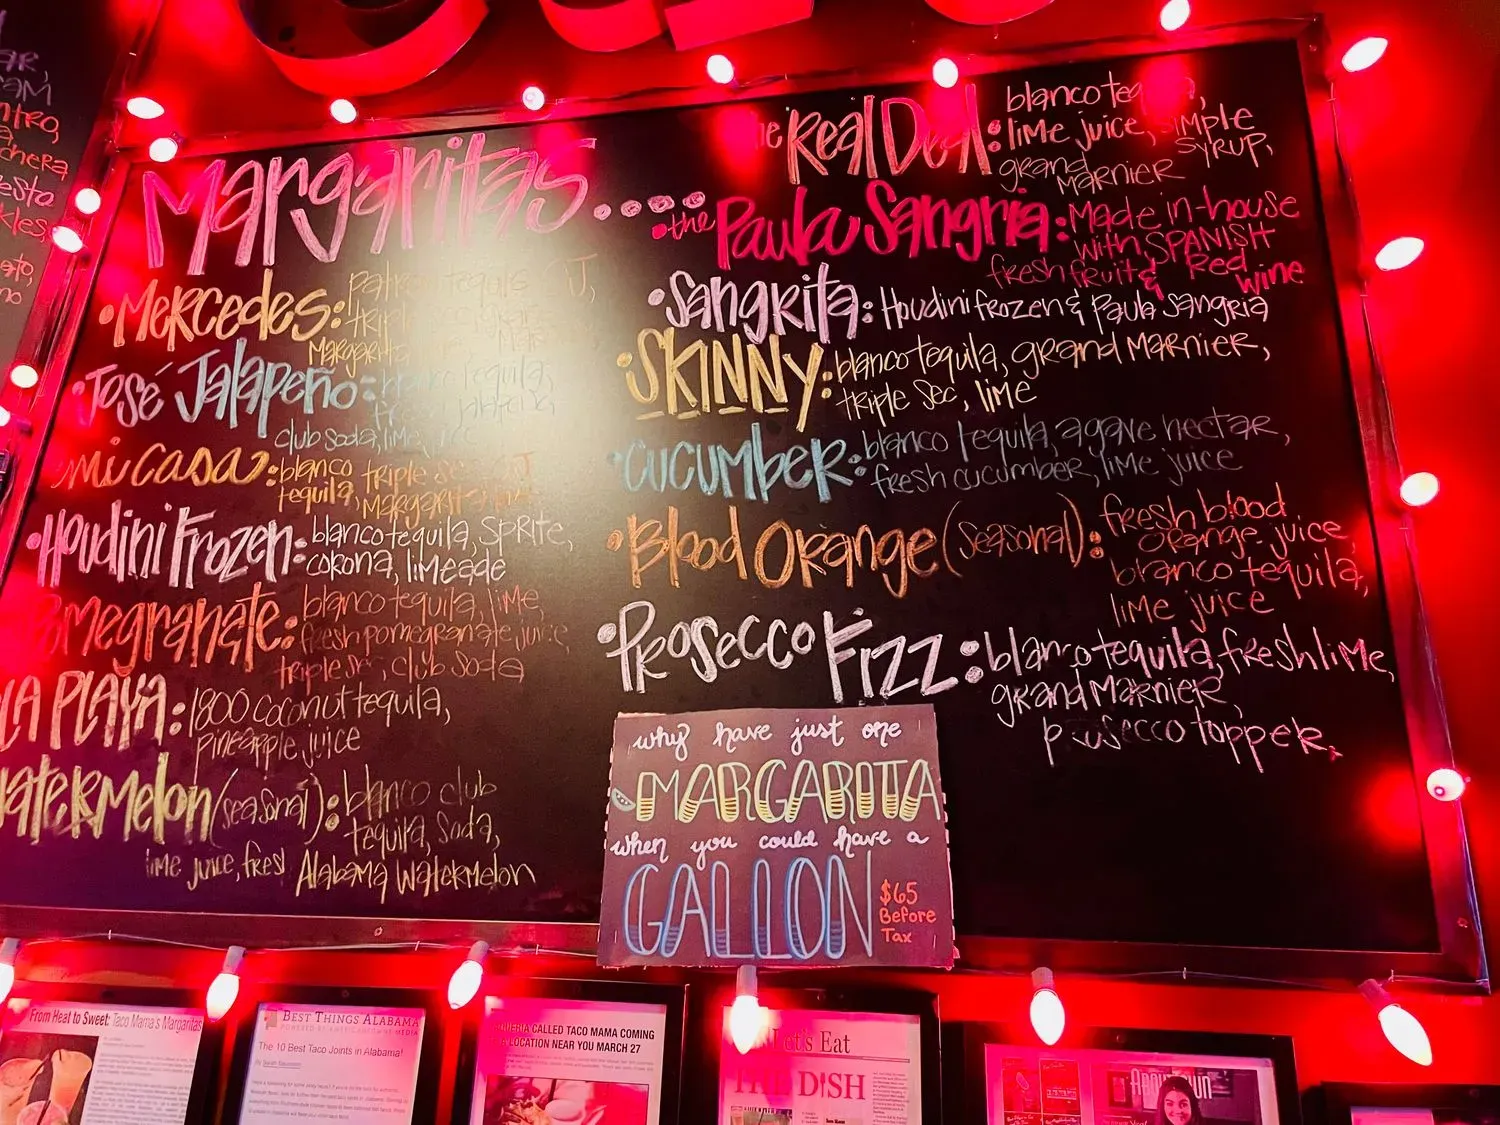 Margaritas....
• Mercedes: patron tequila,
triple
Margarita
• José Jalapeño: blanco tequila,
fresh jalapeño,
club soda, lime
mi casa: blanco triple sec,
tequila, margarita
• Houdini Frozen: blanco tequila, sprite,
corona, limeade
Pomegranate: blanco tequila, lime,
fresh pomegranate juice,
triple sec, club soda
LA PLAYA: 1800 coconut tequila,
pineapple juice
Watermelon (seasonal): blanco club
tequila, soda,
lime juice, fresh Alabama Watermelon
the Real Deal: blanco tequila,
lime juice, simple
syrup,
grand marnier
• the Paula Sangria: Made in-house
with SPANISH
fresh fruit & Red
wine
• Sangrita: Houdini frozen & Paula Sangria
• SKINNY: blanco tequila, grand Marnier,
triple sec, lime
• Cucumber: blanco tequila, agave nectar,
fresh cucumber, lime juice
• Blood Orange (seasonal): fresh blood
orange juice,
blanco tequila,
lime juice
• Prosecco Fizz: blanco tequila, fresh lime,
grand Marnier,
prosecco topper,
why have just one
MARGARITA
when you could have a
GALLON
$65
Before
Tax
From Heat to Sweet: Taco Mama's Margaritas
BEST THINGS ALABAMA
The 10 Best Taco Joints in Alabama!
CALLED TACO MAMA COMING
LOCATION NEAR YOU MARCH 27
Let's Eat
THE DISH